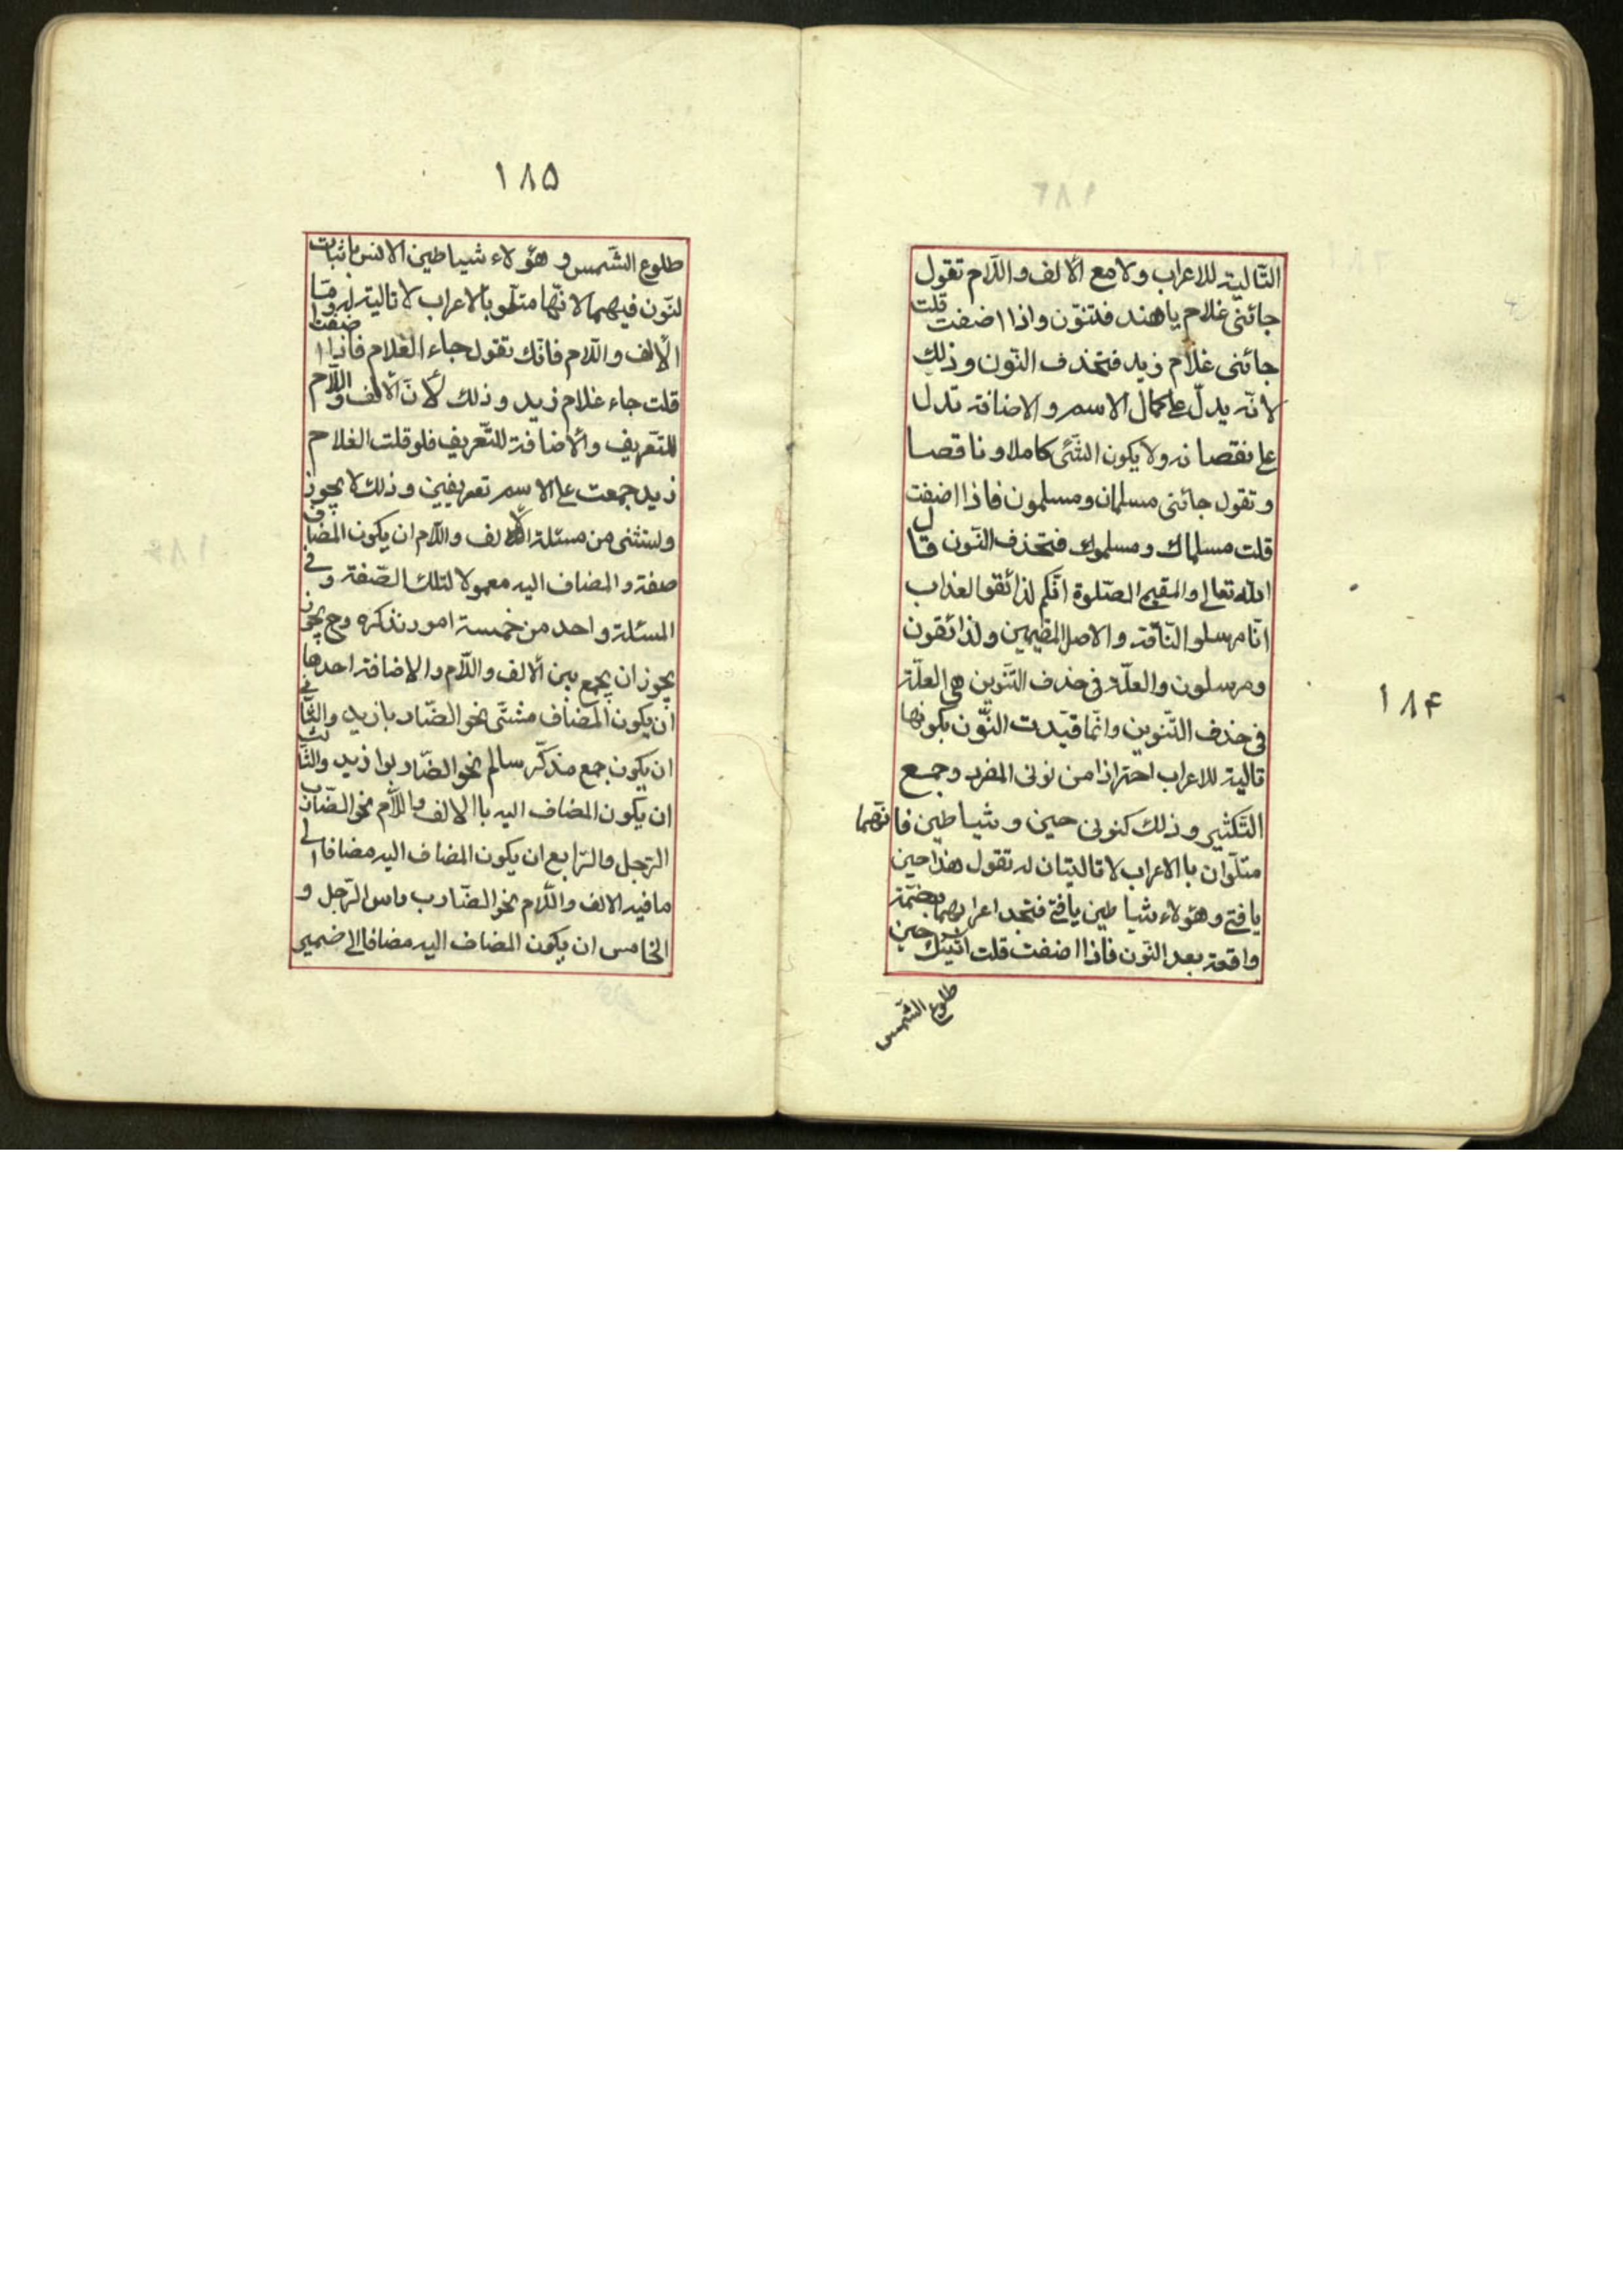 التّالية للاعراب ولا مع الالف واللّام تقول
جائنی غلام یا هند فتنوّن واذا اضفت قلت
جائنی غلام زید فتحذف النّون وذلك
لانّه یدلّ علی کمال الاسم والاضافة تدل
علی نقصانه ولا یکون الشّئی کاملا وناقصا
وتقول جائنی مسلمان ومسلمون فاذا اضفت
قلت مسلماك ومسلموك فتحذف النّون قال
الله تعالی والمقیمی الصّلوة انّکم لذائقوا لعذاب
انّا مرسلو النّاقة والاصل المقیمین ولذائقون
ومرسلون والعلّة فی حذف التّنوین هی العلّة
فی حذف التّنوین وانّما قیّدت النّون بکونها
تالیة للاعراب احترازا من نونی المفرد وجمع
التّکثیر وذلك کنونی حین وشیاطین فانّهما
متلوّان باالاعراب لا تالیتان له تقول هذا حین
یافتی وهؤلاء شیاطین یافتی فتجد اعرابهما بضمّة
واقعة بعد النّون فاذا اضفت قلت اتیتك حین
طلوع الشّمس
۱۸۴
۱۸۵
طلوع الشّمس و هؤلاء شیاطین الانس باثبات
لنّون فیهما لانّها متلو بالاعراب لا تالیة له وامّا
الالف واللّام فانّك تقول جاء الغلام فاذا اضفت
قلت جاء غلام زید وذلك لانّ الالف واللّام
للتّعریف والاضافة للتّعریف فلو قلت الغلام
زید جمعت علی الاسم تعریفین وذلك لا یجوز
ویستثنی من مسئلة الالف واللّام ان یکون المضاف
صفة والمضاف الیه معمولا لتلك الصّفة وفی
المسئلة واحد من خمسة امور نذکره وح یجوز
یجوز ان یجمع بین الالف واللّام والاضافة احدها
ان یکون المضاف مثنّی نحو الضّاربا زید والثّانی
ان یکون جمع مذکّر سالم نحو الضّاربوا زید والثّالث
ان یکون المضاف الیه باالالف واللّام نحو الضّارب
الرّجل والرّابع ان یکون المضاف الیه مضافا الی
ما فیه الالف واللّام نحو الضّارب راس الرّجل و
الخامس ان یکون المضاف الیه مضافا الی ضمیر